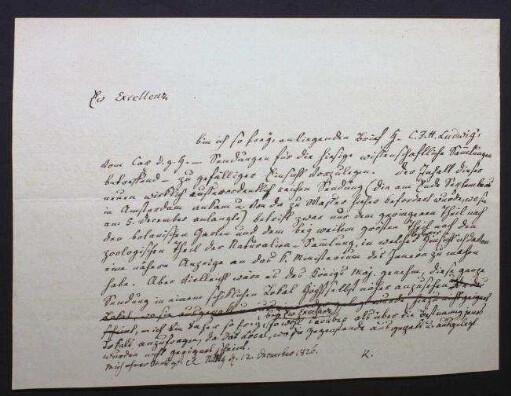 Eu Excellenz
bin ich so frey, anliegenden Brief H. C.F.H. Ludwig's
vom Cap d.g.H. — Sendungen für die hiesige wissenschaftliche Sammlungen
betreffend — zu gefälliger Einsicht vorzulegen. Der Inhalt dieser
neuen wirklich ausserordentlich reichen Sendung (die am Ende Septembers
in Amsterdam ankam u. von da zu Wasser hieher befördert wurde, wo sie
am 5. December anlangte) betrifft zwar nur dem geringeren Theil nach
den botanischen Garten und dem bey weitem grösten Theil nach den
zoologischen Theil der Naturalien-Sammlung, in welcher Hinsicht ich
eine nähere Anzeige an das K. Ministerium des Innern zu machen
habe. Aber vielleicht wäre es des Königs Maj. genehm, diese ganze
Sendung in einem schicklichen Lokal Höchstselbst näher anzusehen
mich daher so frey
Lokals anzufragen, da das Local, wo die Gegenstände ausgepackt
würden nicht geeignet scheint.
12. December 1826. K.